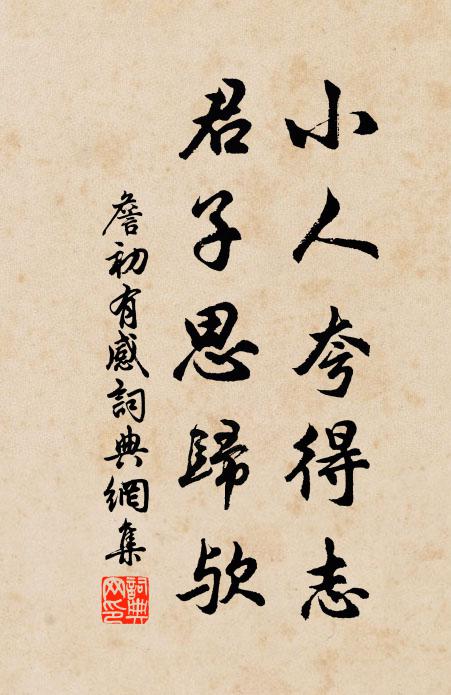 小人夸得志
君子思歸欤
詹初有感詞典網集
詞典網印